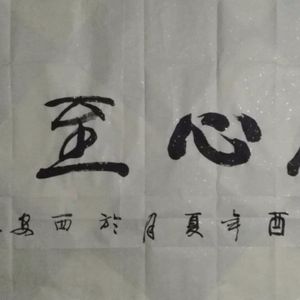 心至
酉年夏月於西安